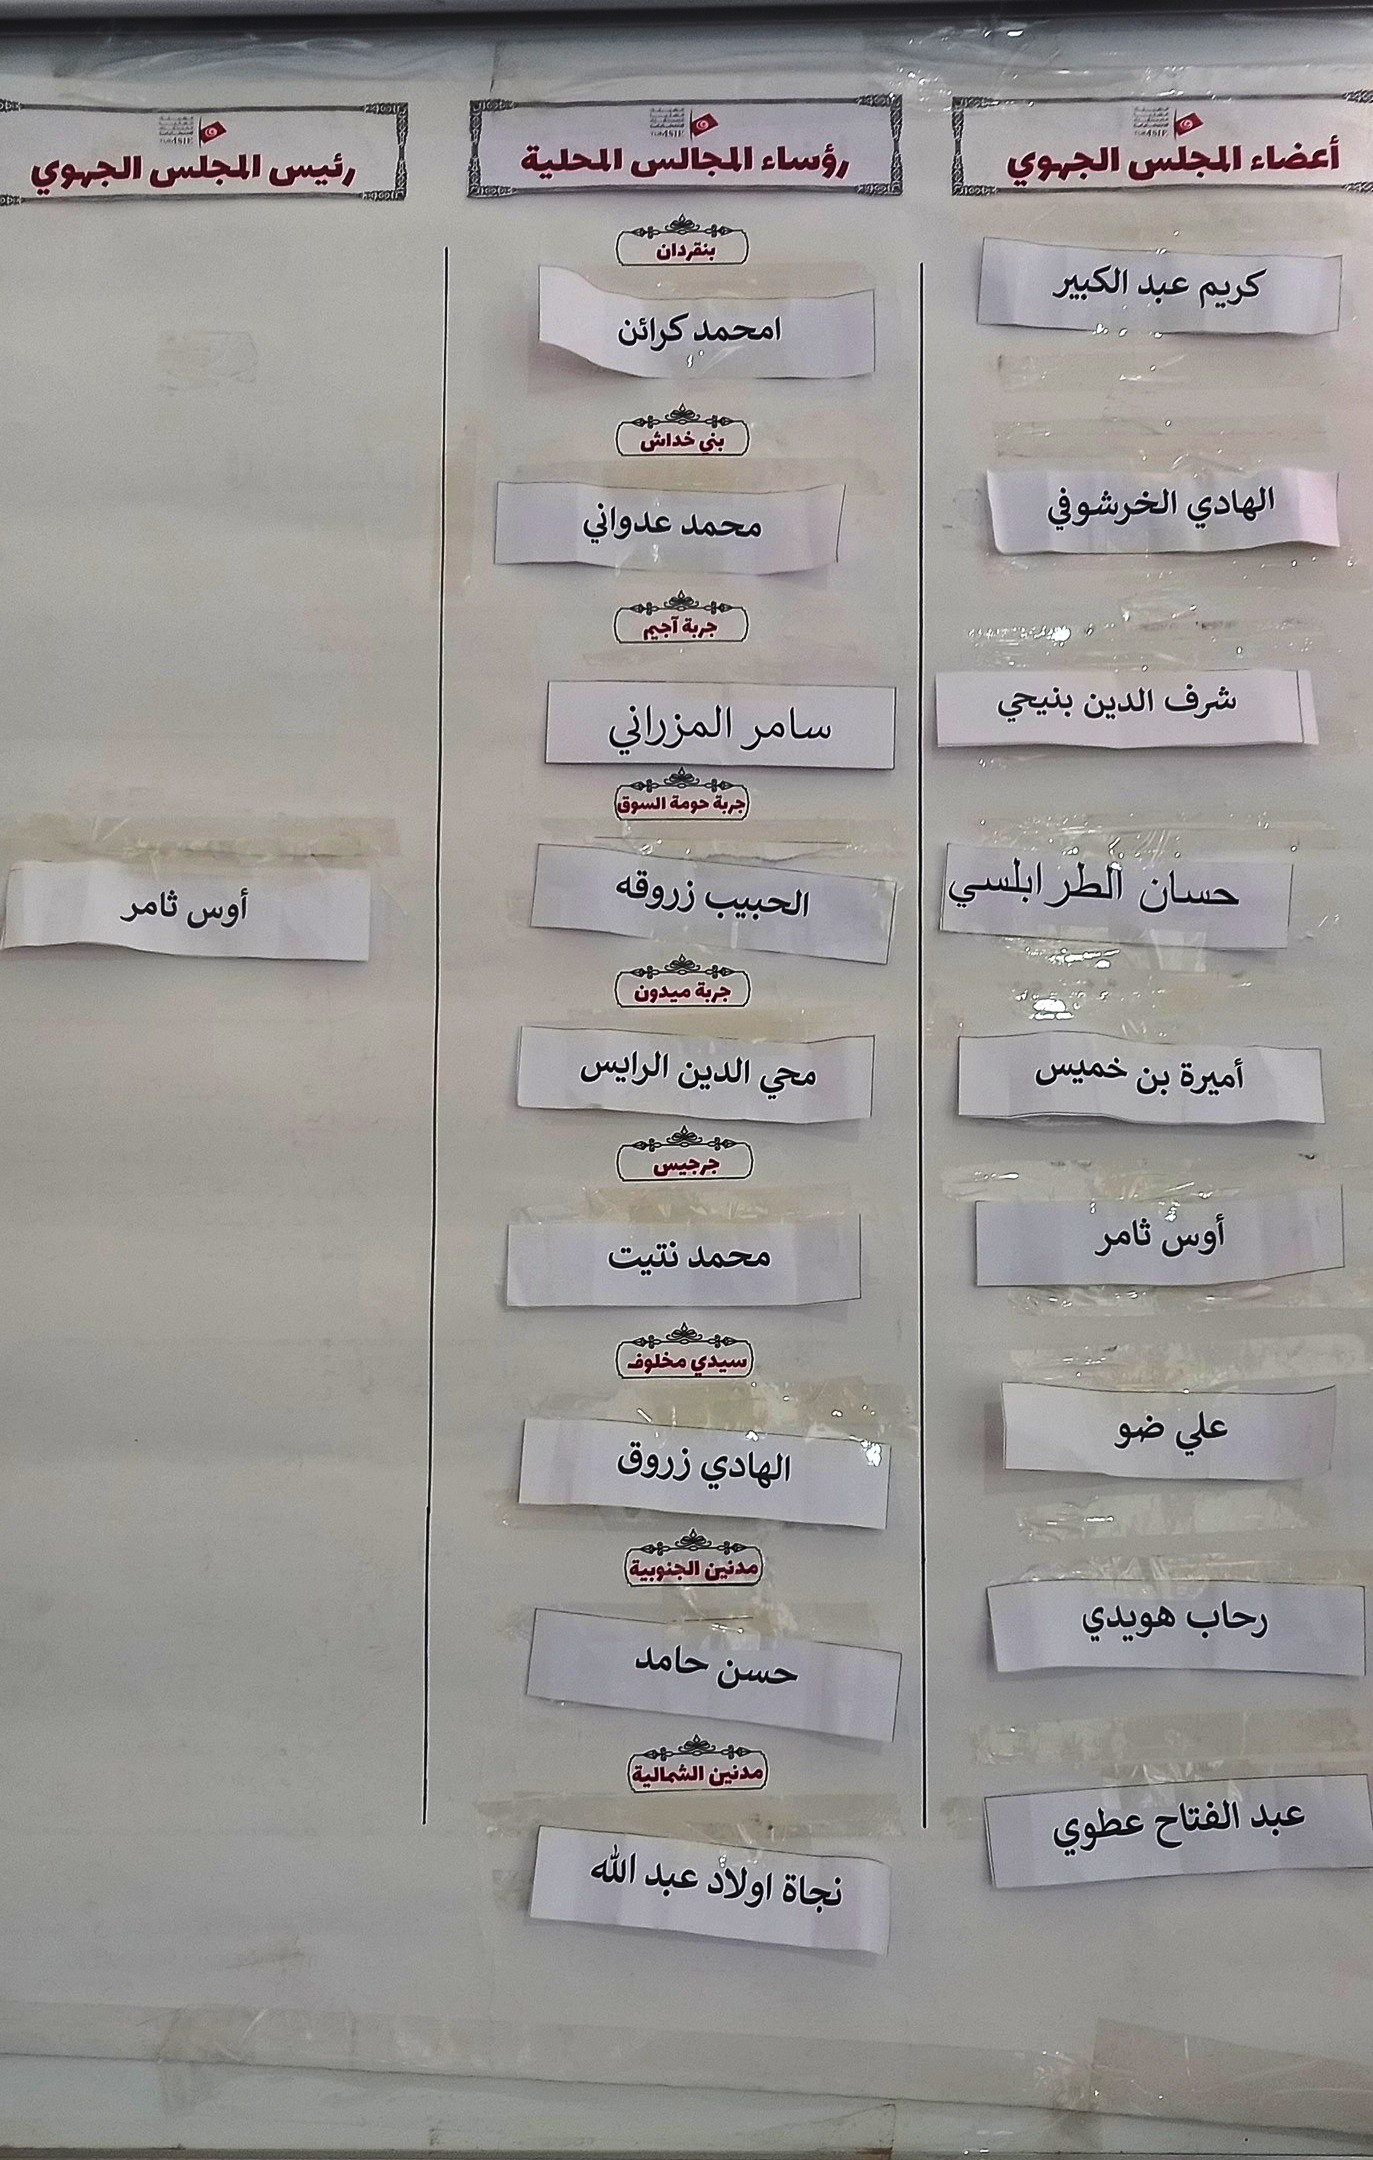 أعضاء المجلس الجهوي
كريم عبد الكبير
الهادي الخرشوفي
شرف الدين بنيحي
حسان الطرابلسي
أميرة بن خميس
أوس ثامر
علي ضو
رحاب هويدي
عبد الفتاح عطوي
رؤساء المجالس المحلية
بنقردان
امحمد كرائن
بني خداش
محمد عدواني
جربة آجيم
سامر المزراني
جربة حومة السوق
الحبيب زروقه
جربة ميدون
محي الدين الرايس
جرجيس
محمد نتيت
سيدي مخلوف
الهادي زروق
مدنين الجنوبية
حسن حامد
مدنين الشمالية
نجاة اولاد عبد الله
رئيس المجلس الجهوي
أوس ثامر